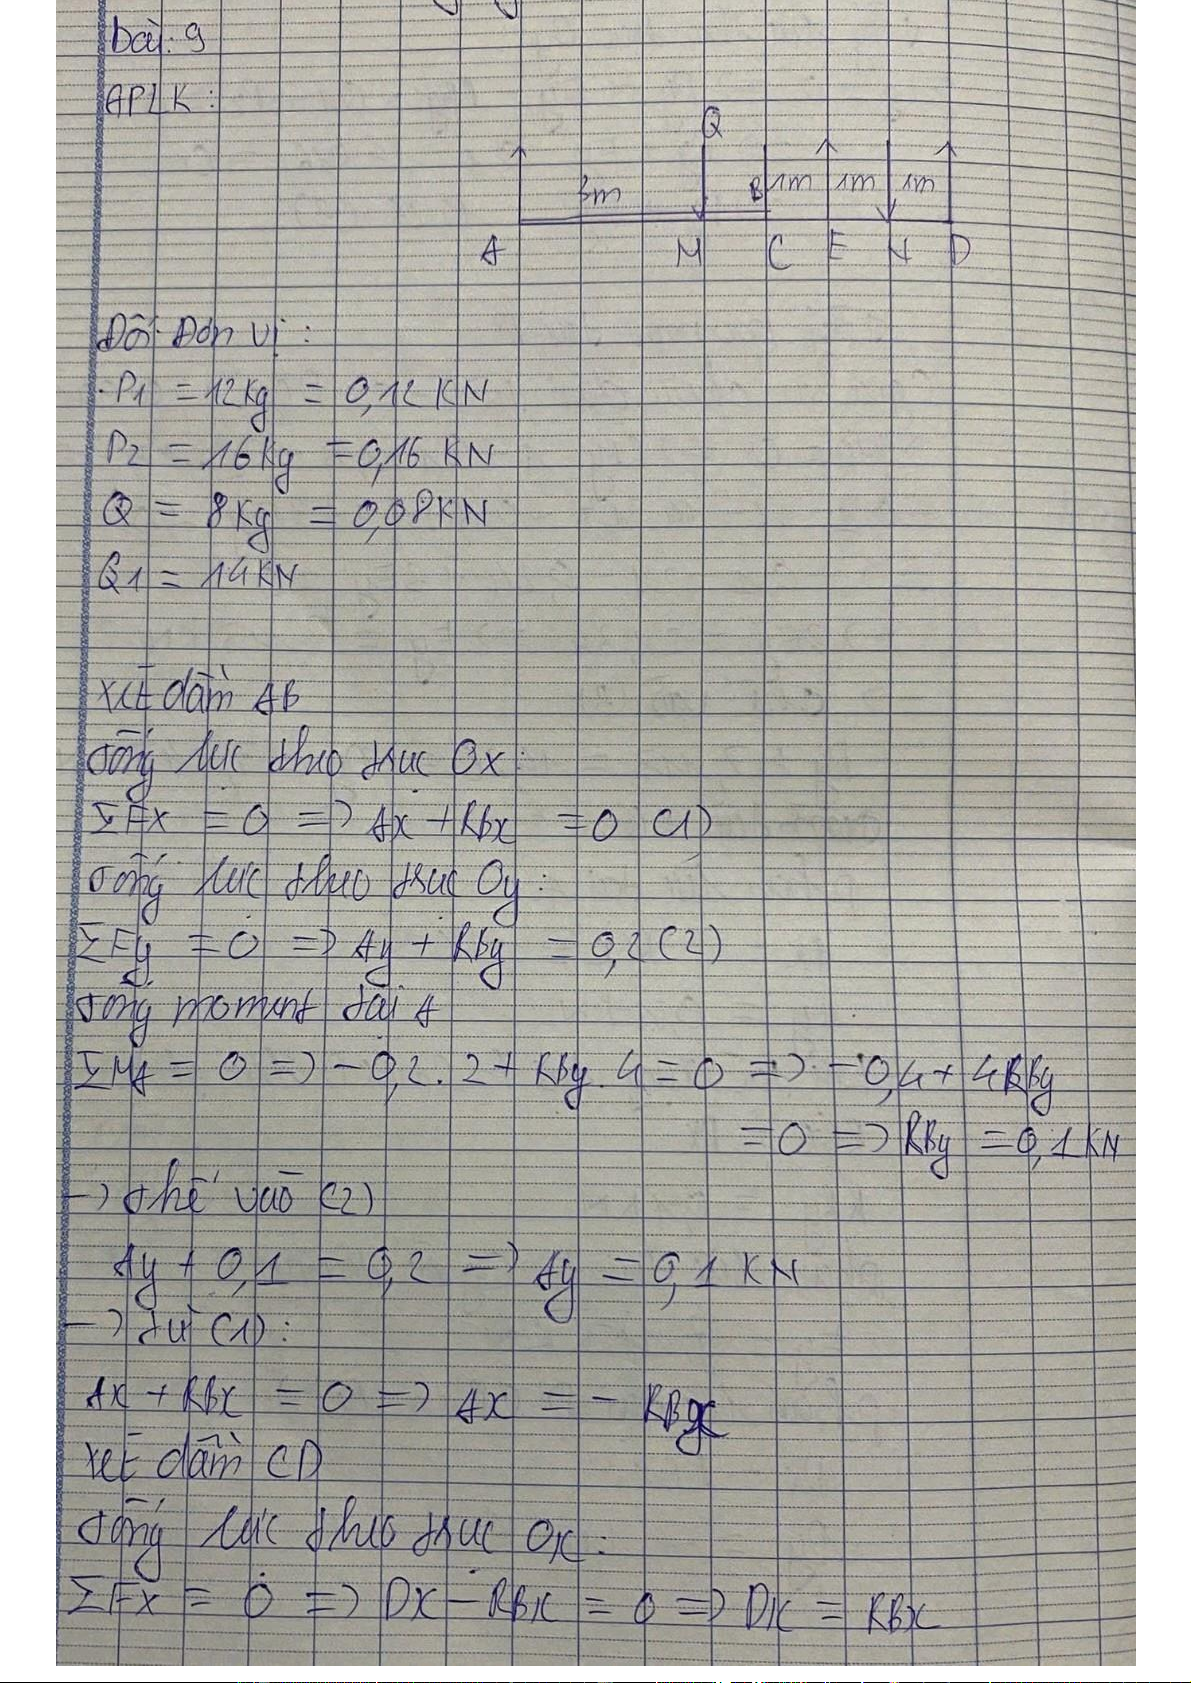 bài: 9
APLK:
Q
3m B 1m 1m 1m
A M C E N D
Đổi Đơn vị:
P1 = 12kg = 0,12 KN
P2 = 16kg = 0,16 KN
Q = 8kg = 0,08KN
Q1 = 14KN
xét dầm AB
tổng lực theo trục Ox:
ΣFx = 0 => Ax + RBx = 0 (1)
tổng lực theo trục Oy:
ΣFy = 0 => Ay + RBy = 0,2 (2)
tổng moment tại A
ΣMA = 0 => -0,2.2 + RBy.4 = 0 => -0,4 + 4RBy
= 0 => RBy = 0,1 KN
-> thế vào (2)
Ay + 0,1 = 0,2 => Ay = 0,1 KN
-> từ (1):
Ax + RBx = 0 => Ax = - RBx
xét dầm CD
tổng lực theo trục Ox:
ΣFx = 0 => Dx - RBx = 0 => Dx = RBx